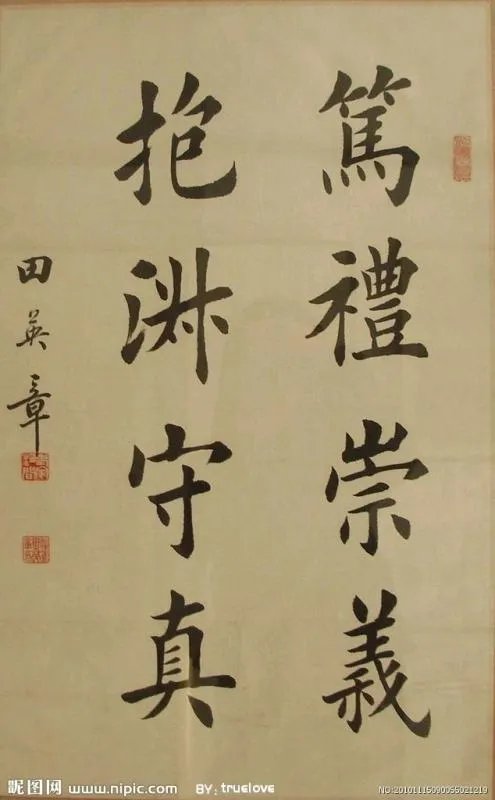 篤禮崇義
抱淵守真
田英章
昵图网 www.nipic.com
BY: truelove
NO:20101115090055021219